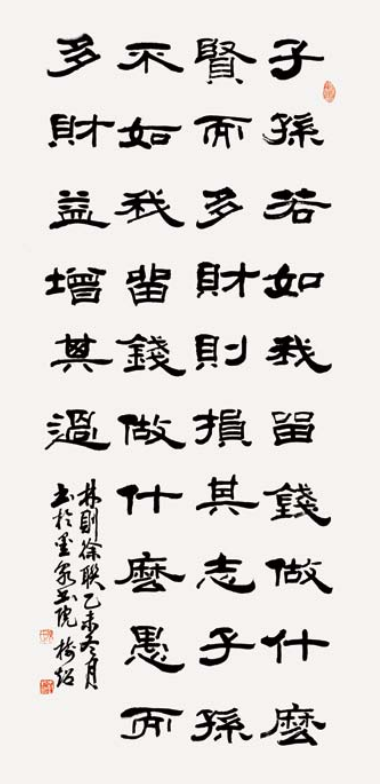 子孫若如我留錢做什麼
賢而多財則損其志子孫
不如我留錢做什麼愚而
多財益增其過
林則徐聯乙未冬月
书於墨书院